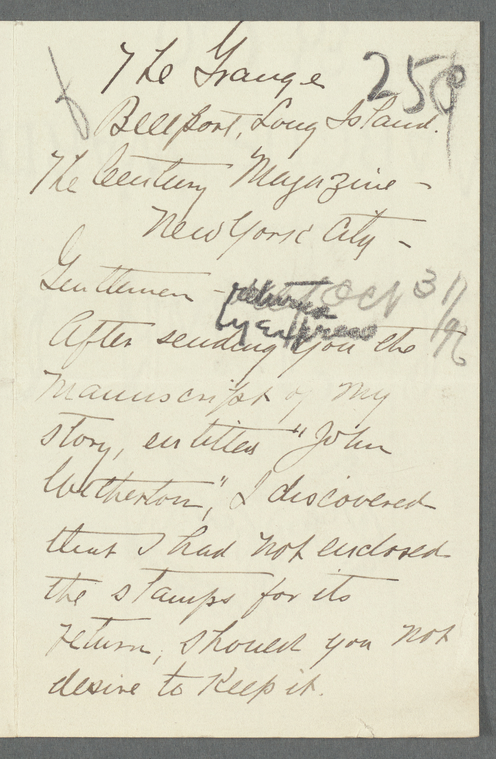 The Grange
258
Bellport, Long Island.
The Century Magazine -
New York City -
Gentlemen -
returned
by express
Oct 31/96
After sending you the
manuscript of my
story, entitled "John
Wetherton", I discovered
that I had not enclosed
the stamps for its
return, should you not
desire to keep it.